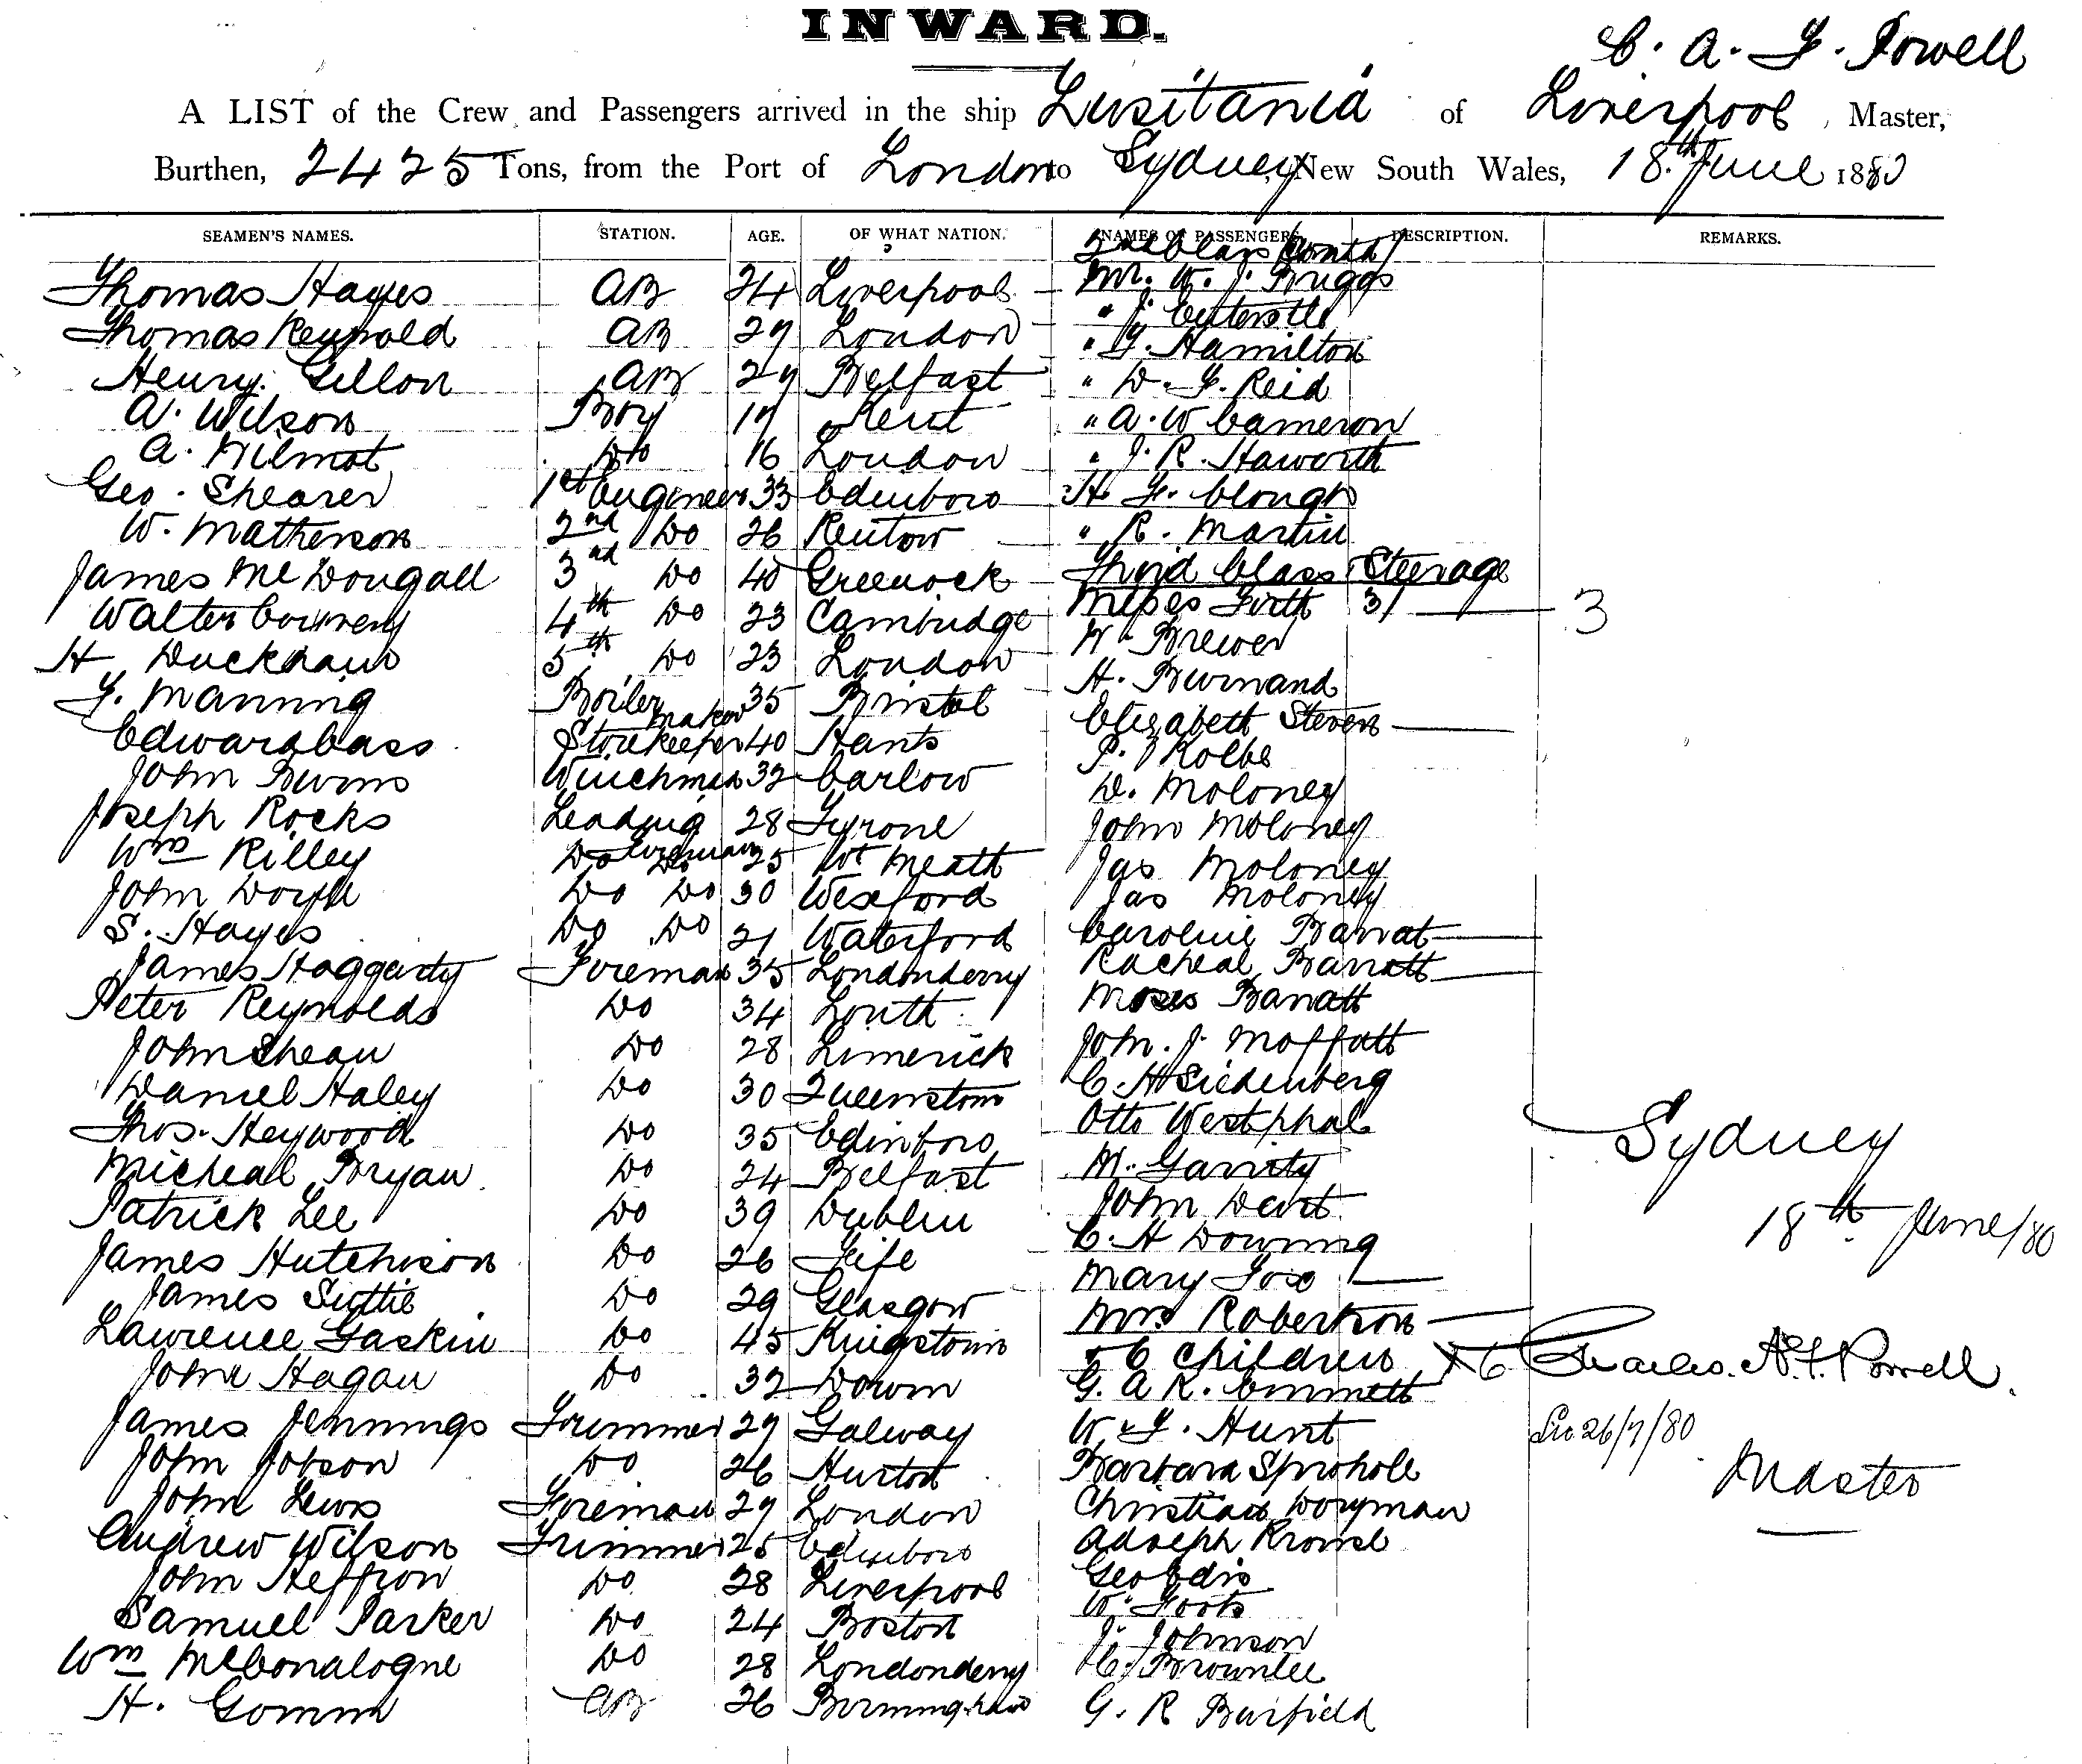 INWARD.
C. A. F. Powell
A LIST of the Crew and Passengers arrived in the ship Lusitania of Liverpool, Master,
Burthen, 2425 Tons, from the Port of London to Sydney, New South Wales, 18th June 1880
SEAMEN'S NAMES. STATION. AGE. OF WHAT NATION. NAMES OF PASSENGERS. DESCRIPTION. REMARKS.
2nd Class (Contd)
Thomas Hayes AB 24 Liverpool Mr. W. J. Briggs
Thomas Reynold AB 27 London " J.
Henry Gillon AB 27 Belfast " G. Hamilton
" D. G. Reid
A. Wilson Boy 17 Kent " A. W Cameron
A. Wilmot Do 16 London " J. R. Haworth
Geo. Shearer 1st Engineer 33 Edinboro H. F. Clough
W. Matherson 2nd Do 26 " R. Martin
James McDougall 3rd Do 40 Greenock Third Class Steerage
Walter 4th Do 23 Cambridge Misses Firth 31 3
H Duckham 5th Do 23 London W. Brewer
F. Manning Boiler maker 35 Bristol H. Burnand
Edward Cass Storekeeper 40 Hants Elizabeth Steven
John Burns Winchman 32 Carlow P. Kolbe
Joseph Rocks Leading Fireman 28 Tyrone D. Moloney
John Moloney
Wm Killey Do Do 25 Wt Meath Jas Moloney
John Doyle Do Do 30 Wexford Jas Moloney
S. Hayes Do Do 21 Waterford Caroline Barrat
James Haggarty Fireman 35 Londonderry Racheal Barratt
Peter Reynolds Do 34 Louth Moses Barratt
John Shean Do 28 Limerick John. J. Moffatt
Daniel Haley Do 30 Queenstown C. H Siedenberg
Thos. Heywood Do 35 Edinboro Otto Westphal
Sydney
Micheal Bryan Do 24 Belfast M. Garrity
Patrick Lee Do 39 Dublin John Dent
18th June/80
James Hutchison Do 26 Fife C. H Downing
James Do 29 Glasgow Mary Fox
Lawrence Gaskin Do 45 Kingstown Mrs Robertson
John Hagan Do 32 Down & 6 Children x 6 Charles. A. F. Powell.
G. A R. Emmett
James Jennings Trimmer 27 Galway W. F. Hunt
26/7/80
John Jobson Do 26 Barbara
Master
John Lewis Fireman 27 London Christian
Andrew Wilson Trimmer 25 Edinboro Adolph
John Heffron Do 28 Liverpool Geo Edis
Samuel Parker Do 24 Boston W. Foots
J. Johnson
Wm McConalogne Do 28 Londonderry C. Brownlee
H. Gomm AB 26 Birmingham G. R Burfield